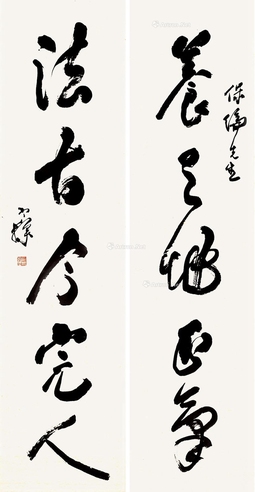 保先生
養天地正氣
法古今完人